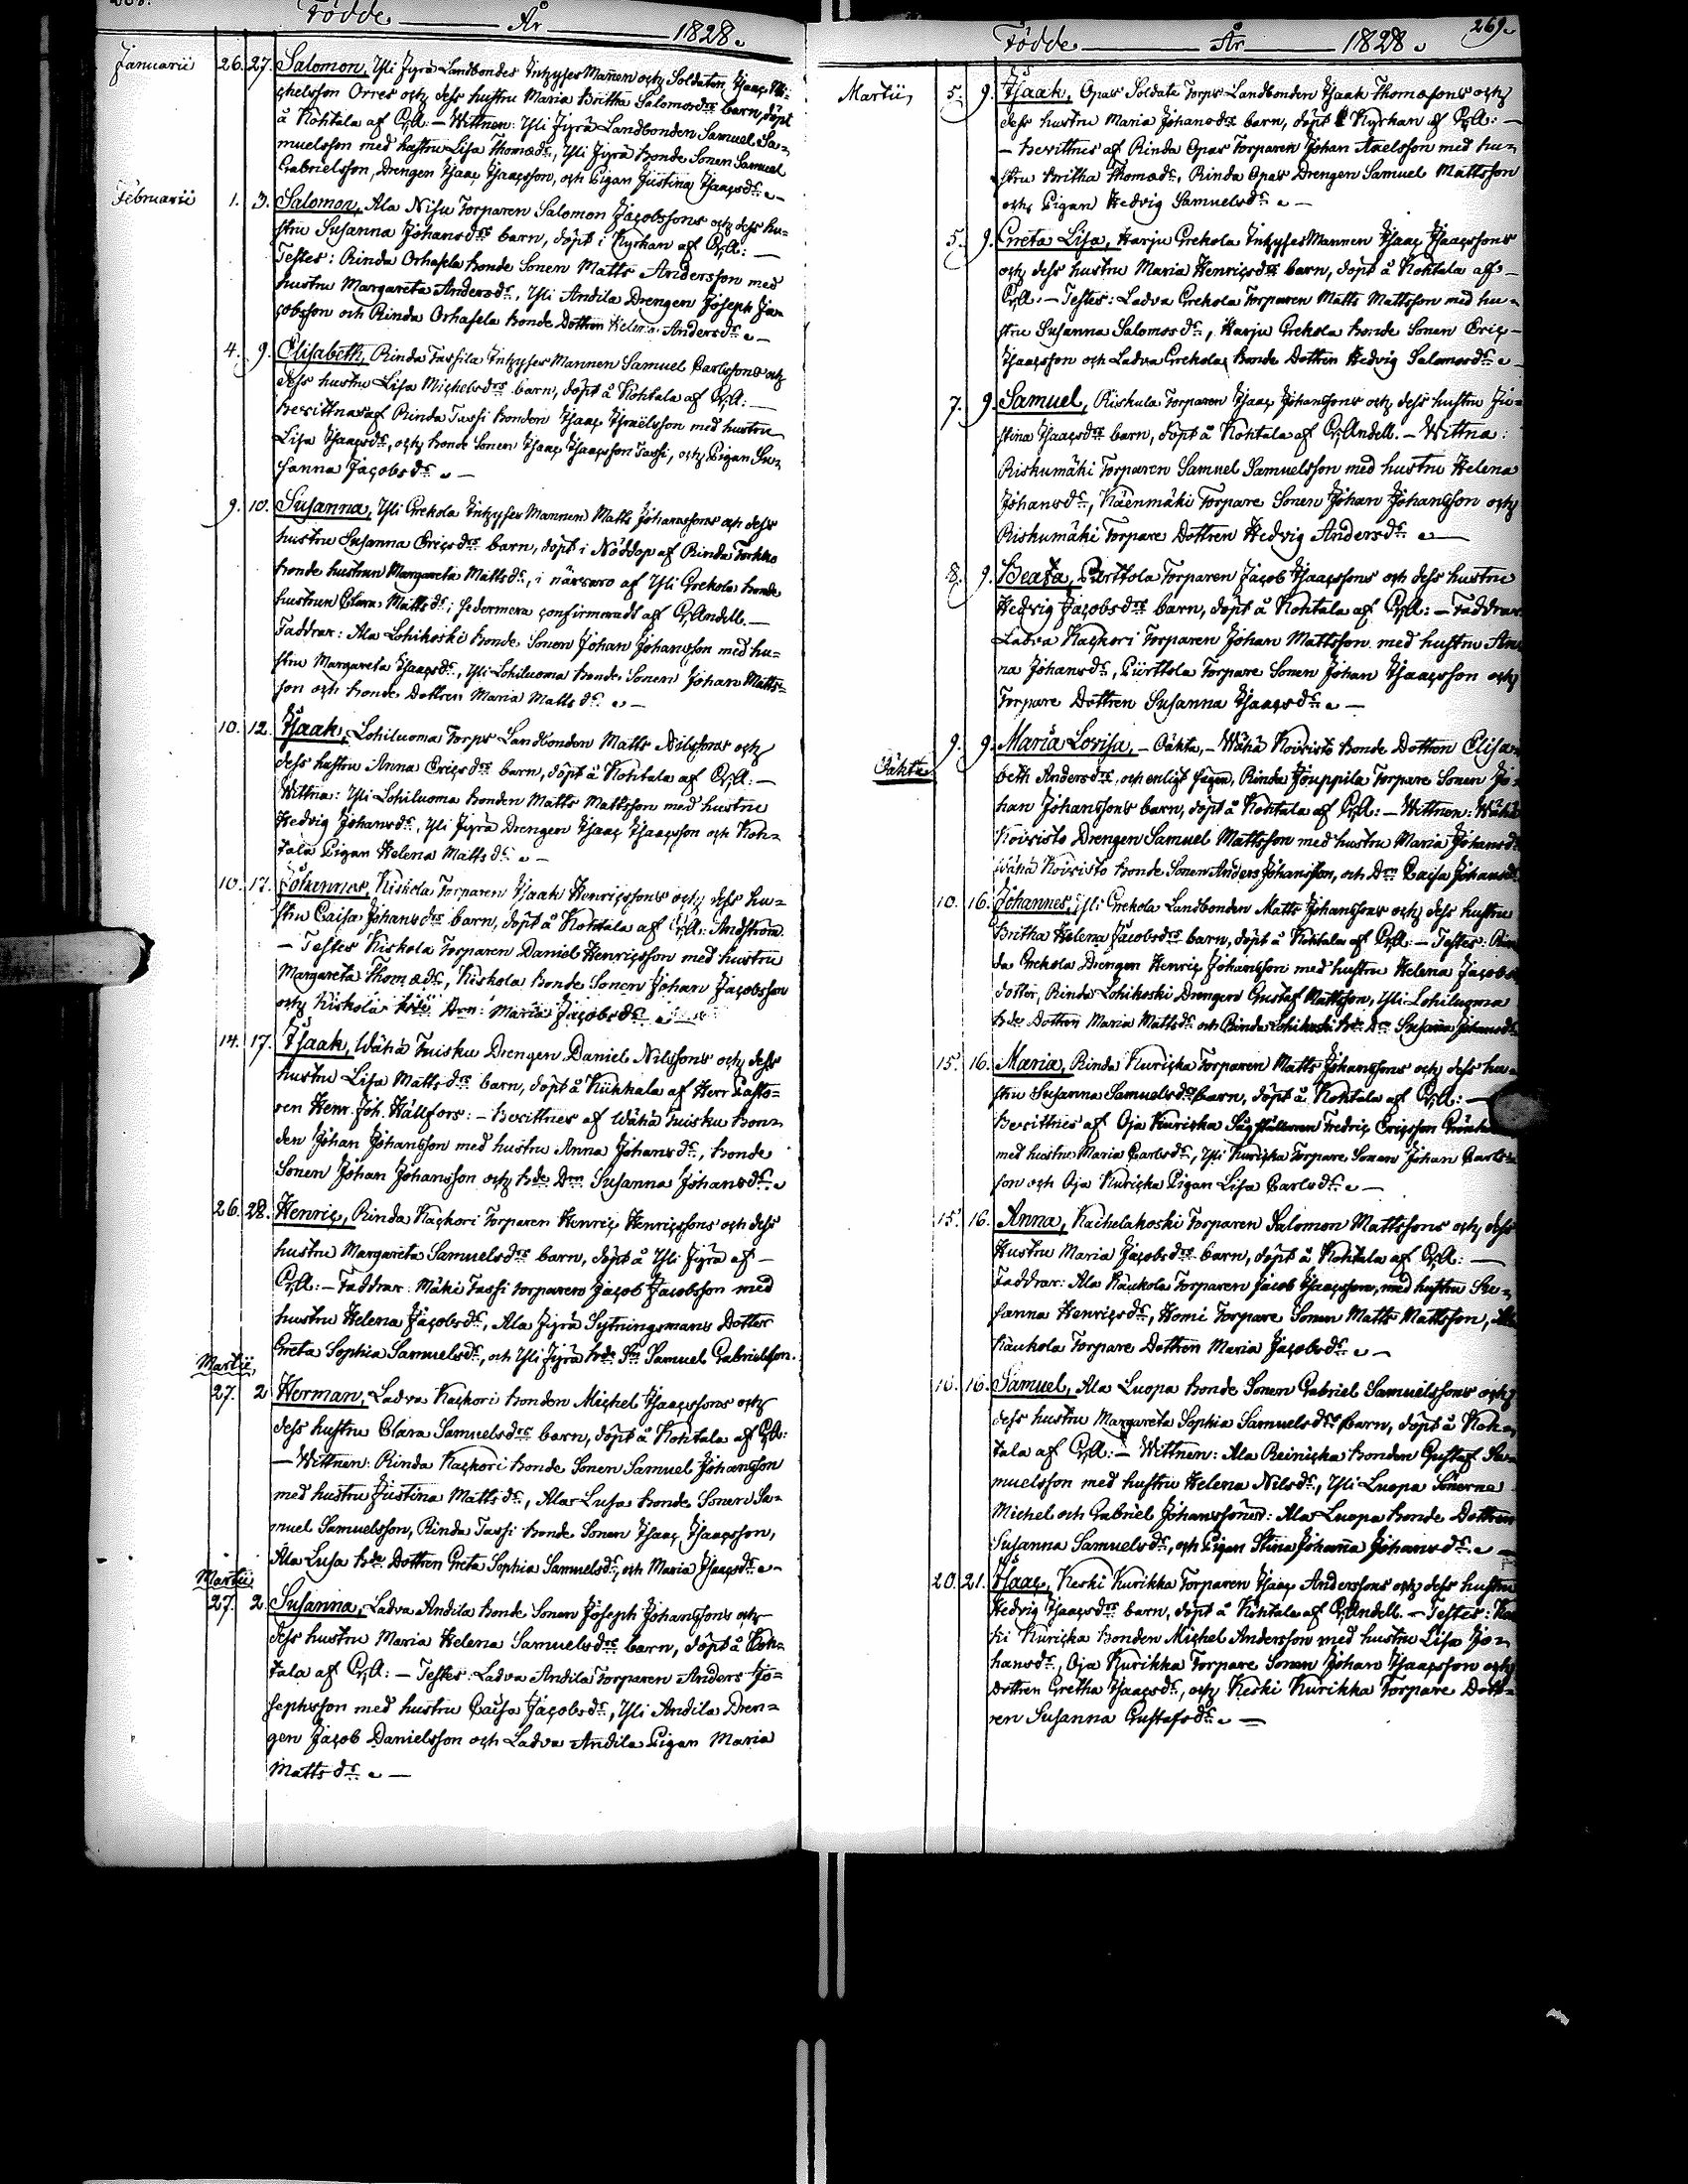 Födde År 1828.
Januarii 26. 27. Salomon, Yli Jyrä Landbondes Inhyses Mañen och Soldaten Isaac Mi=
chelsson Orres och dess hustru Maria Britha Salomonsdrs barn, döpt
å Kohtala af C,A: — Wittnen: Yli Jyrä Landbonden Samuel Sa=
muelsson med hustru Lisa Thomædr, Yli Jyrä Bonde Sonen Samuel
Gabrielsson, Drengen Isaac Isaacsson, och Pigan Justina Isaacsdr. —
Februarii 1. 3. Salomon, Ala Nisu Torparen Salomon Jacobssons och dess hu=
stru Susanna Johansdrs barn, döpt i Kyrkan af C,A: —
Testes: Rinda Orhasela Bonde Sonen Matts Andersson med
hustru Margareta Andersdr, Yli Andila Drengen Joseph Ja=
cobsson och Rinda Orhasela Bonde Dottren Helena Andersdr. —
4. 9. Elisabeth, Rinda Tassila Inhyses Mannen Samuel Carlssons och
dess hustru Lisa Michelsdrs barn, döpt å Kohtala af C,A: —
Bevittnas af Rinda Tassi Bonden Isaac Israëlsson med hustru
Lisa Isaacsdr, och Bonde Sonen Isaac Isaacsson Tassi, och Pigan Su=
sanna Jacobsdr. —
9. 10. Susanna, Yli Grekola Inhyses Mannen Matts Johanssons och dess
hustru Susanna Ericsdrs barn, döpt i Nöddop af Rinda Torkko
Bonde hustrun Margareta Mattsdr, i närvaro af Yli Grekola Bonde
hustrun Clara Mattsdr; sedermera confirmeradt af C,Andell. —
Faddrar: Ala Lohikoski Bonde Sonen Johan Johansson med hu=
stru Margareta Isaacsdr, Yli Lohiluoma Bonde Sonen Johan Matts=
son och Bonde Dottren Maria Mattsdr. —
10. 12. Isaak, Lohiluoma Torps Landbonden Matts Nilssons och
dess hustru Anna Ericsdrs barn, döpt å Kohtala af C,A: —
Wittna: Yli Lohiluoma Bonden Matts Mattsson med hustru
Hedvig Johansdr, Yli Jyrä Drengen Isaac Isaacsson och Koh=
tala Pigan Helena Mattsdr. —
10. 17. Johannes, Kiskola Torparen Isaak Henricssons och dess hu=
stru Caisa Johansdrs barn, döpt å Kohtala af C,A: Andström
— Testes Kiskola Torparen Daniel Henricsson med hustru
Margareta Thomædr, Kiskola Bonde Sonen Johan Jacobsson
och Kiskola Drn: Maria Jacobsdr. —
14. 17. Isaak, Wähä Tuisku Drengen Daniel Nilssons och dess
hustru Lisa Mattsdrs barn, döpt å Kiikkala af Herr Pasto=
ren Henr. Joh. Hällfors: — Bevittnes af Wähä Tuisku Bon=
den Johan Johansson med hustru Anna Johansdr, Bonde
Sonen Johan Johansson och Bde Drn Susanna Johansdr.
26. 28. Henric, Rinda Kackori Torparen Henric Henricssons och dess
hustru Margareta Samuelsdrs barn, döpt å Yli Jyrä af —
C,A: — Faddrar: Mäki Tassi torparen Jacob Jacobsson med
hustru Helena Jacobsdr, Ala Jyrä Sytningsmans Dotter
Greta Sophia Samuelsdr, och Yli Jyrä Bde Sn Samuel Gabrielsson.
Martii
27. 2 Herman, Ladva Kackori Bonden Michel Isaacssons och
dess hustru Clara Samuelsdrs barn, döpt å Kohtala af C,A:
— Wittnen: Rinda Kackori Bonde Sonen Samuel Johansson
med hustru Justina Mattsdr, Ala Lusa Bonde Sonen Sa=
muel Samuelsson, Rinda Tassi Bonde Sonen Isaac Isaacsson,
Ala Lusa Bde Dottren Greta Sophia Samuelsdr, och Maria Isaacsdr. —
Martii
27. 2. Susanna, Ladva Andila Bonde Sonen Joseph Johanssons och
dess hustru Maria Helena Samuelsdrs barn, döpt å Koh=
tala af C,A: — Testes: Ladva Andila Torparen Anders Jo=
sephsson med hustru Caisa Jacobsdr, Yli Andila Dren=
gen Jacob Danielsson och Ladva Andila Pigan Maria
Mattsdr. —
Födde År 1828. 269.
Martii 5. 9. Isaak, Opas Soldate Torps Landbonden Isaak Thomæsons och
dess hustru Maria Johansdrs barn, döpt i Kyrkan af C,A: —
— Bevittnes af Rinda Opas Torparen Johan Axelsson med hu=
stru Britha Thomædr, Rinda Opas Drengen Samuel Mattsson
och Pigan Hedvig Samuelsdr. —
5. 9. Greta Lisa, Harju Grekola Inhyses Mannen Isaac Isaacssons
och dess hustru Maria Henricsdrs barn, döpt å Kohtala af —
C,A. — Testes: Ladva Grekola Torparen Matts Mattsson med hu=
stru Susanna Salomonsdr, Harju Grekola Bonde Sonen Eric
Isaacsson och Ladva Grekola Bonde Dottren Hedvig Salomonsdr. —
7. 9. Samuel, Riskula Torparen Isaac Johanssons och dess hustru Ju=
stina Isaacsdrs barn, döpt å Kohtala af C,Andell. — Wittna:
Riskumäki Torparen Samuel Samuelsson med hustru Helena
Johansdr, Käenmäki Torpare Sonen Johan Johansson och
Riskumäki Torpare Dottren Hedvig Andersdr. —
8. 9. Beata, Piirttola Torparen Jacob Isaacssons och dess hustru
Hedvig Jacobsdrs barn, döpt å Kohtala af C,A: — Faddrar
Ladva Kackori Torparen Johan Mattsson med hustru An
na Johansdr, Piirttola Torpare Sonen Johan Isaacsson och
Torpare Dottren Susanna Isaacsdr. —
Oäkta 9. 9. Maria Lovisa, — Oäkta, — Wähä Koivisto Bonde Dottren Elisa=
beth Andersdrs, och enligt sägen, Rinda Jouppila Torpare Sonen Jo=
han Johanssons barn, döpt å Kohtala af C,A: — Wittnen: Wähä
Koivisto Drengen Samuel Mattsson med hustru Maria Johansd
Wähä Koivisto Bonde Sonen Anders Johansson, och Drn Caisa Johansdr
10. 16. Johannes, Yli Grekola Landbonden Matts Johanssons och dess hustru
Britha Helena Jacobsdrs barn, döpt å Kohtala af C,A: — Testes: Rin
da Grekola Drengen Henric Johansson med hustru Helena Jacobs
dotter, Rinda Lohikoski Drengen Gustaf Mattsson, Yli Lohiluoma
Bde Dottren Maria Mattsdr och Rinda Lohikoski Bde Drn Susaña Johansdr
15. 16. Maria, Rinda Kuricka Torparen Matts Johanssons och dess hu=
stru Susanna Samuelsdrs barn, döpt å Kohtala af C,A: —
Bevittnes af Oja Kuricka Fredric Ericsson
med hustru Maria Carlsdr, Yli Kuricka Torpare Sonen Johan Carls=
son och Oja Kuricka Pigan Lisa Carlsdr. —
15. 16. Anna, Kachelakoski Torparen Salomon Mattssons och dess
Hustru Maria Jacobsdrs barn, döpt å Kohtala af C,A: —
Faddrar: Ala Käukola Torparen Jacob Isaacsson, med hustru Su=
sanna Henricsdr, Homi Torpare Sonen Matts Mattsson, Ala
Käukola Torpare Dottren Maria Jacobsdr. —
16. Samuel, Ala Luopa Bonde Sonen Gabriel Samuelssons och
dess hustru Margareta Sophia Samuelsdrs barn, döpt å Koh=
tala af C,A: — Wittnen: Ala Reinicka Bonden Gustaf Sa=
muelsson med hustru Helena Nilsdr, Yli Luopa Sönerna
Michel och Gabriel Johanssöner: Ala Luopa Bonde Dottren
Susanna Samuelsdr, och Pigan Stina Johaña Johansdr. —
20. 21. Isaac, Keski Kurikka Torparen Isaac Anderssons och dess hustru
Hedvig Isaacsdrs barn, döpt å Kohtala af C,Andell. — Testes: Ko
ki Kuricka Bonden Michel Andersson med hustru Lisa Jo=
hansdr, Oja Kurikka Torpare Sonen Johan Isaacsson och
Dottren Gretha Isaacsdr, och Keski Kurikka Torpare Dott=
ren Susanna Gustafsdr. —